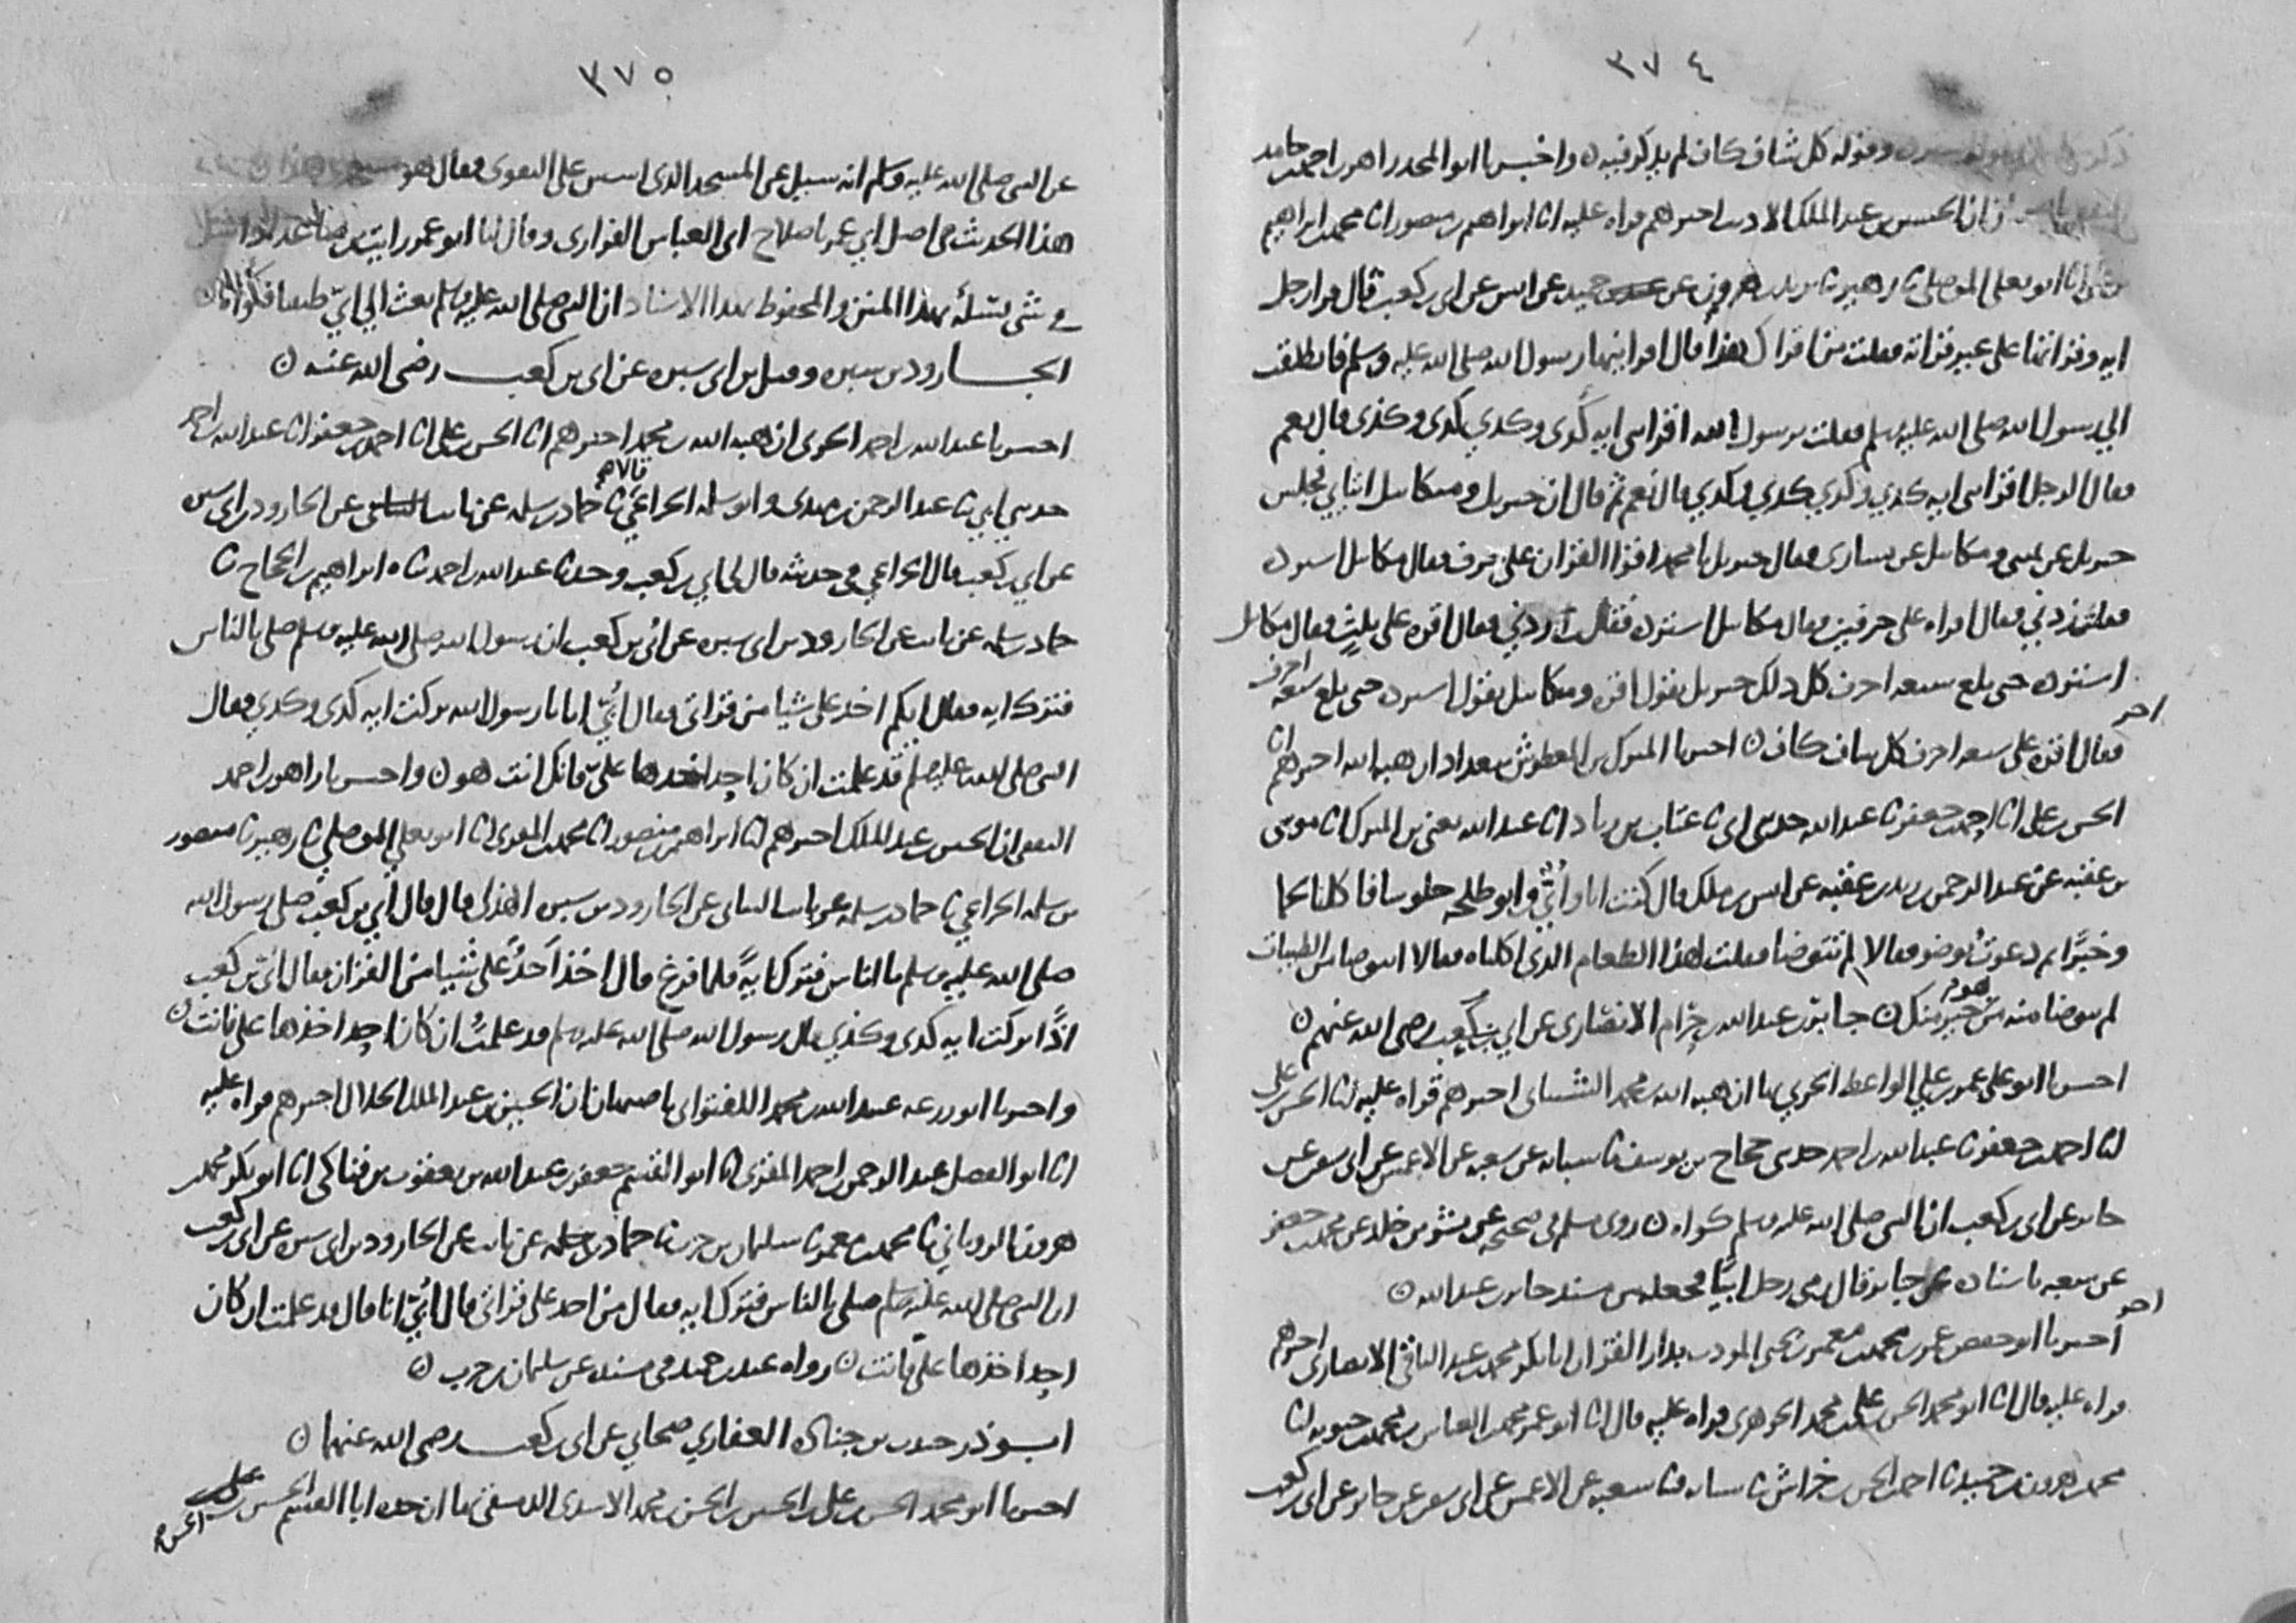 ٣٧٤
وقوله كل شاف كاف لم يذكر فيه ن واخبرنا ابو المجد زاهر بن احمد بن حامد
ان الحسين بن عبد الملك الاديب اخبرهم قراه عليه انا ابراهيم بن منصور انا محمد بن ابراهيم
بن علي انا ابو يعلى الموصلي ثنا زهير ثنا يزيد بن هرون عن حميد عن انس عن ابي بن كعب قال قرا رجل
ايه وقراتها على غير قراته فقلت من اقراك هذا قال اقرانيها رسول الله صلى الله عليه وسلم فانطلقت
الي رسول الله صلى الله عليه وسلم فقلت يرسول الله اقراتني ايه كذى وكذي كذى وكذى قال نعم
فقال الرجل اقراتني ايه كذي وكذي كذي وكذي قال نعم ثم قال ان جبريل وميكاييل اتياني فجلس
جبريل عن يميني وميكاييل عن يساري فقال جبريل يا محمد اقرا القران على حرف فقال ميكاييل استزده
فقلت زدني فقال اقراه على حرفين فقال ميكاييل استزده فقلت زدني فقال اقره على ثلثة فقال ميكاييل
استزده حتى بلغ سبعه احرف كل ذلك جبريل يقول اقره وميكاييل يقول استزده حتى بلغ سبعه احرف
فقال اقره على سبعه احرف كل شاف كاف ن اخبرنا المبارك بن المعطوش ببغداد ان هبه الله اخبرهم انا
الحسن بن علي انا احمد بن جعفر ثنا عبد الله حدثني ابي ثنا عتاب بن زياد انا عبد الله يعني بن المبرك انا موسى
بن عقبه عن عبد الرحمن بن يزيد بن عقبه عن انس بن ملك قال كنت انا وابي وابو طلحه جلوسا فاكلنا لحما
وخبزا ثم دعوت بوضو فقالا لم تتوضا فقلت لهذا الطعام الذي اكلناه فقالا اتتوضا من الطيبات
لم يتوضا منه من هو خير منك ن جابر بن عبد الله بن حرام الانصاري عن ابي بن كعب رضي الله عنهم ن
اخبرنا ابو علي عمر بن علي الواعظ الحربي بها ان هبه الله بن محمد الشيباني اخبرهم قراه عليه انا الحسن بن علي
انا احمد بن جعفر ثنا عبد الله بن احمد حدثني حجاج بن يوسف ثنا شبابه عن شعبه عن الاعمش عن ابي سفين عن
جابر عن ابي بن كعب ان النبي صلى الله عليه وسلم كواه ن روى مسلم في صحيحه عن بشر بن خلد عن محمد بن جعفر
عن شعبه باسناده عن جابر قال رمي رجل ابيا فجعله من مسند جابر بن عبد الله ن
اخبرنا ابو حفص عمر بن محمد بن معمر بن يحيى المودب بدار القز ان ابا بكر محمد بن عبد الباقي الانصاري اخبرهم
قراه عليه قال انا ابو محمد الحسن بن علي بن محمد الجوهري قراه عليه قال انا ابو عمر محمد بن العباس بن محمد بن حيويه انا
محمد بن هرون بن حميد ثنا احمد بن الحسن بن خراش ثنا شبابه ثنا شعبه عن الاعمش عن ابي سفين عن جابر عن ابي بن كعب
٣٧٥
عن النبي صلى الله عليه وسلم انه سيل عن المسجد الذي اسس على التقوى فقال هو
هذا الحديث في اصل ابي عمر باصلاح ابي العباس الفزاري وقال لنا ابو عمر رايت
في شي يتلوه بهذا المتن والمحفوظ بهذا الاسناد ان النبي صلى الله عليه وسلم بعث الي ابي طبيبا فكواه
الجارود بن سبره وقيل بن ابي سبره عن ابي بن كعب رضي الله عنه ن
اخبرنا عبد الله بن احمد الحربي ان هبه الله بن محمد اخبرهم انا الحسن بن علي انا احمد بن جعفر انا عبد الله بن احمد
حدثني ابي ثنا عبد الرحمن بن مهدي وابو سلمه الخزاعي قالا ثنا حماد بن سلمه عن ثابت عن الجارود بن ابي سبره
عن ابي بن كعب قال الخزاعي في حديثه قال لي ابي بن كعب وحدثنا عبد الله بن احمد ثنا ابراهيم بن الحجاج ثنا
حماد بن سلمه عن ثابت عن الجارود بن ابي سبره عن ابي بن كعب ان رسول الله صلى الله عليه وسلم صلى بالناس
فترك ايه فقال ايكم اخذ علي شيا من قراتي فقال ابي انا يا رسول الله تركت ايه كذى وكذي فقال
النبي صلى الله عليه وسلم قد علمت ان كان احد اخذها علي فانك انت هو ن واخبرنا زاهر بن احمد
الثقفي ان الحسين بن عبد الملك اخبرهم انا ابراهيم بن منصور انا محمد بن المقري انا ابو يعلى الموصلي ثنا زهير ثنا منصور
بن سلمه الخزاعي ثنا حماد بن سلمه عن ثابت البناني عن الجارود بن سبره الهذلي قال قال ابي بن كعب صلى رسول الله
صلى الله عليه وسلم بالناس فترك ايه فلما فرغ قال اخذ احد علي شيا من القران فقال ابي بن كعب
اذا تركت ايه كذى وكذي قال رسول الله صلى الله عليه وسلم قد علمت ان كان احد اخذها علي فانت ن
واخبرنا ابو زرعه عبيد الله بن محمد اللفتواني باصبهان ان الحسين بن عبد الملك الخلال اخبرهم قراه عليه
انا ابو الفضل عبد الرحمن بن احمد المقري انا ابو القسم جعفر بن عبد الله بن يعقوب بن فناكي انا ابو بكر محمد بن
هرون الروياني ثنا محمد بن معمر ثنا سليمان بن حرب ثنا حماد بن سلمه عن ثابت عن الجارود بن ابي سبره عن ابي بن كعب
ان النبي صلى الله عليه وسلم صلى بالناس فترك ايه فقال من اخذ علي قراتي قال ابي انا قال قد علمت ان كان
احد اخذها علي فانت ن رواه عبد بن حميد في مسنده عن سليمان بن حرب ن
ابو ذر جندب بن جناده الغفاري صحابي عن ابي بن كعب رضي الله عنهما ن
اخبرنا ابو محمد الحسن بن علي بن الحسين بن الحسن بن محمد الاسدي الدمشقي بها ان جده ابا القسم الحسين بن